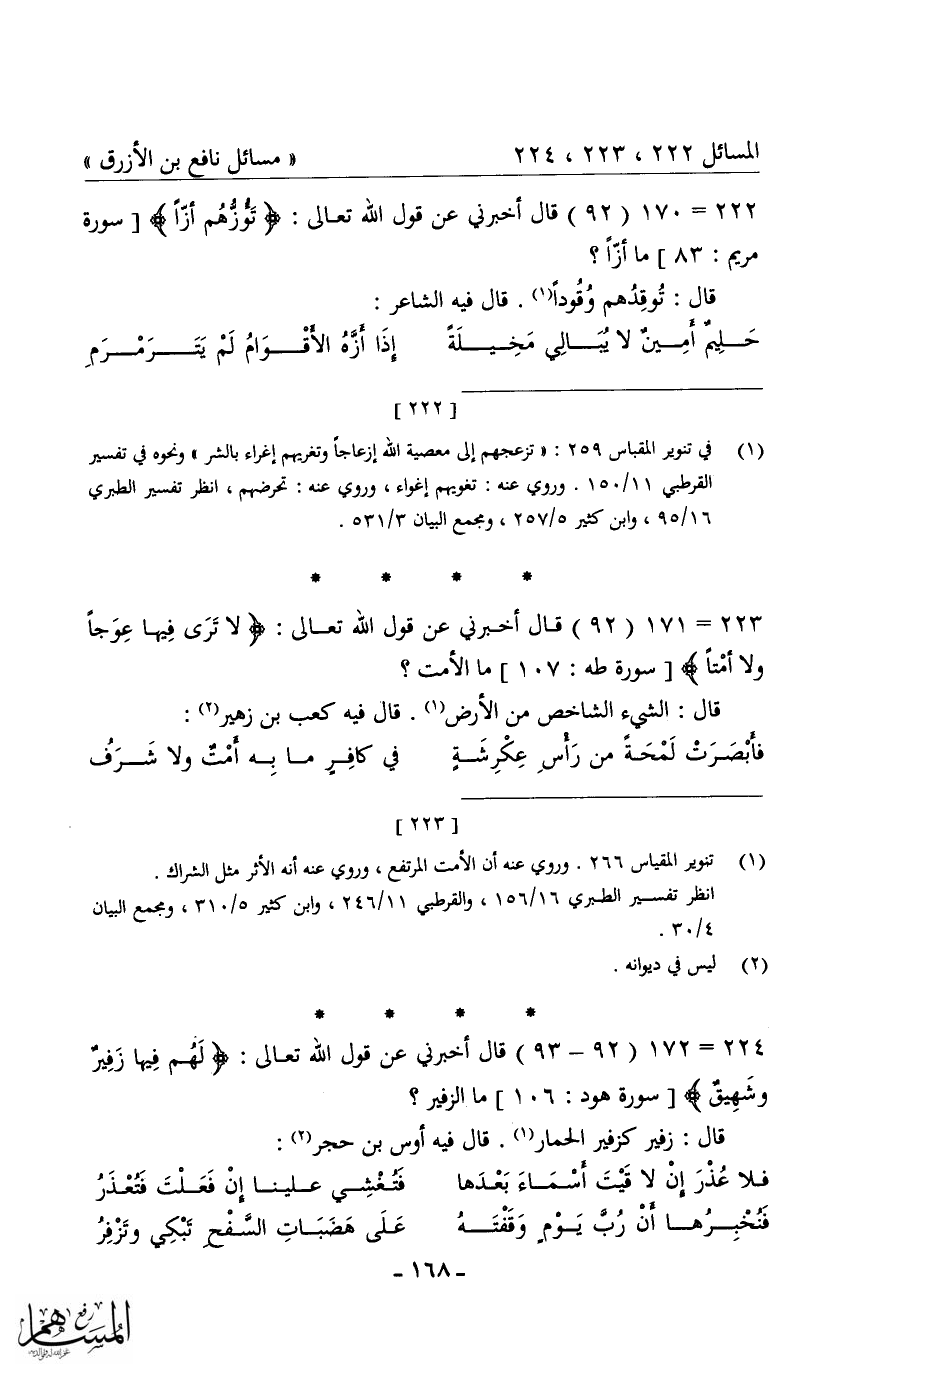 المسائل ٢٢٢ ، ٢٢٣ ، ٢٢٤ « مسائل نافع بن الأزرق »
٢٢٢ = ١٧٠ ( ٩٢ ) قال أخبرني عن قول الله تعالى : ﴿ تَؤُزُّهُم أزّاً ﴾ [ سورة
مريم : ٨٣ ] ما أزّاً ؟
قال : تُوقِدُهم وُقُوداً(١) . قال فيه الشاعر :
حَـلِيمٌ أَمِينٌ لا يُبَالِي مَخِيلَةً إِذَا أَزَّهُ الأَقْوَامُ لَمْ يَتَرَمْرَمِ
[ ٢٢٢ ]
(١) في تنوير المقباس ٢٥٩ : « تزعجهم إلى معصية الله إزعاجاً وتغريهم إغراء بالشر » ونحوه في تفسير
القرطبي ١٥٠/١١ . وروي عنه : تغويهم إغواء ، وروي عنه : تحرضهم ، انظر تفسير الطبري
٩٥/١٦ ، وابن كثير ٢٥٧/٥ ، ومجمع البيان ٥٣١/٣ .
* * * *
٢٢٣ = ١٧١ ( ٩٢ ) قال أخبرني عن قول الله تعالى : ﴿ لا تَرَى فِيها عِوَجاً
ولا أمْتاً ﴾ [ سورة طه : ١٠٧ ] ما الأمت ؟
قال : الشيء الشاخص من الأرض(١) . قال فيه كعب بن زهير(٢) :
فأَبْصَرَتْ لَمْحَةً من رَأْسِ عِكْرِشَةٍ في كافِرٍ ما بِه أَمْتٌ ولا شَرَفُ
[ ٢٢٣ ]
(١) تنوير المقياس ٢٦٦ . وروي عنه أن الأمت المرتفع ، وروي عنه أنه الأثر مثل الشراك .
انظر تفسير الطبري ١٥٦/١٦ ، والقرطبي ٢٤٦/١١ ، وابن كثير ٣١٠/٥ ، ومجمع البيان
٣٠/٤ .
(٢) ليس في ديوانه .
* * * *
٢٢٤ = ١٧٢ ( ٩٢ – ٩٣ ) قال أخبرني عن قول الله تعالى : ﴿ لَهُم فِيها زَفِيرٌ
وشَهِيقٌ ﴾ [ سورة هود : ١٠٦ ] ما الزفير ؟
قال : زفير كزفير الحمار(١) . قال فيه أوس بن حجر(٢) :
فلا عُذْرَ إنْ لا قَيْتَ أَسْمَاءَ بَعْدَها فَتُغْشِي علينا إنْ فَعَلْتَ فَتُعْذَرُ
فَنُخْبِرُها أَنْ رُبَّ يَوْمٍ وَقَفْتَهُ عَلَى هَضَبَاتِ السَّفْحِ تَبْكِي وتَزْفِرُ
- ١٦٨ -
رفع
المساهم